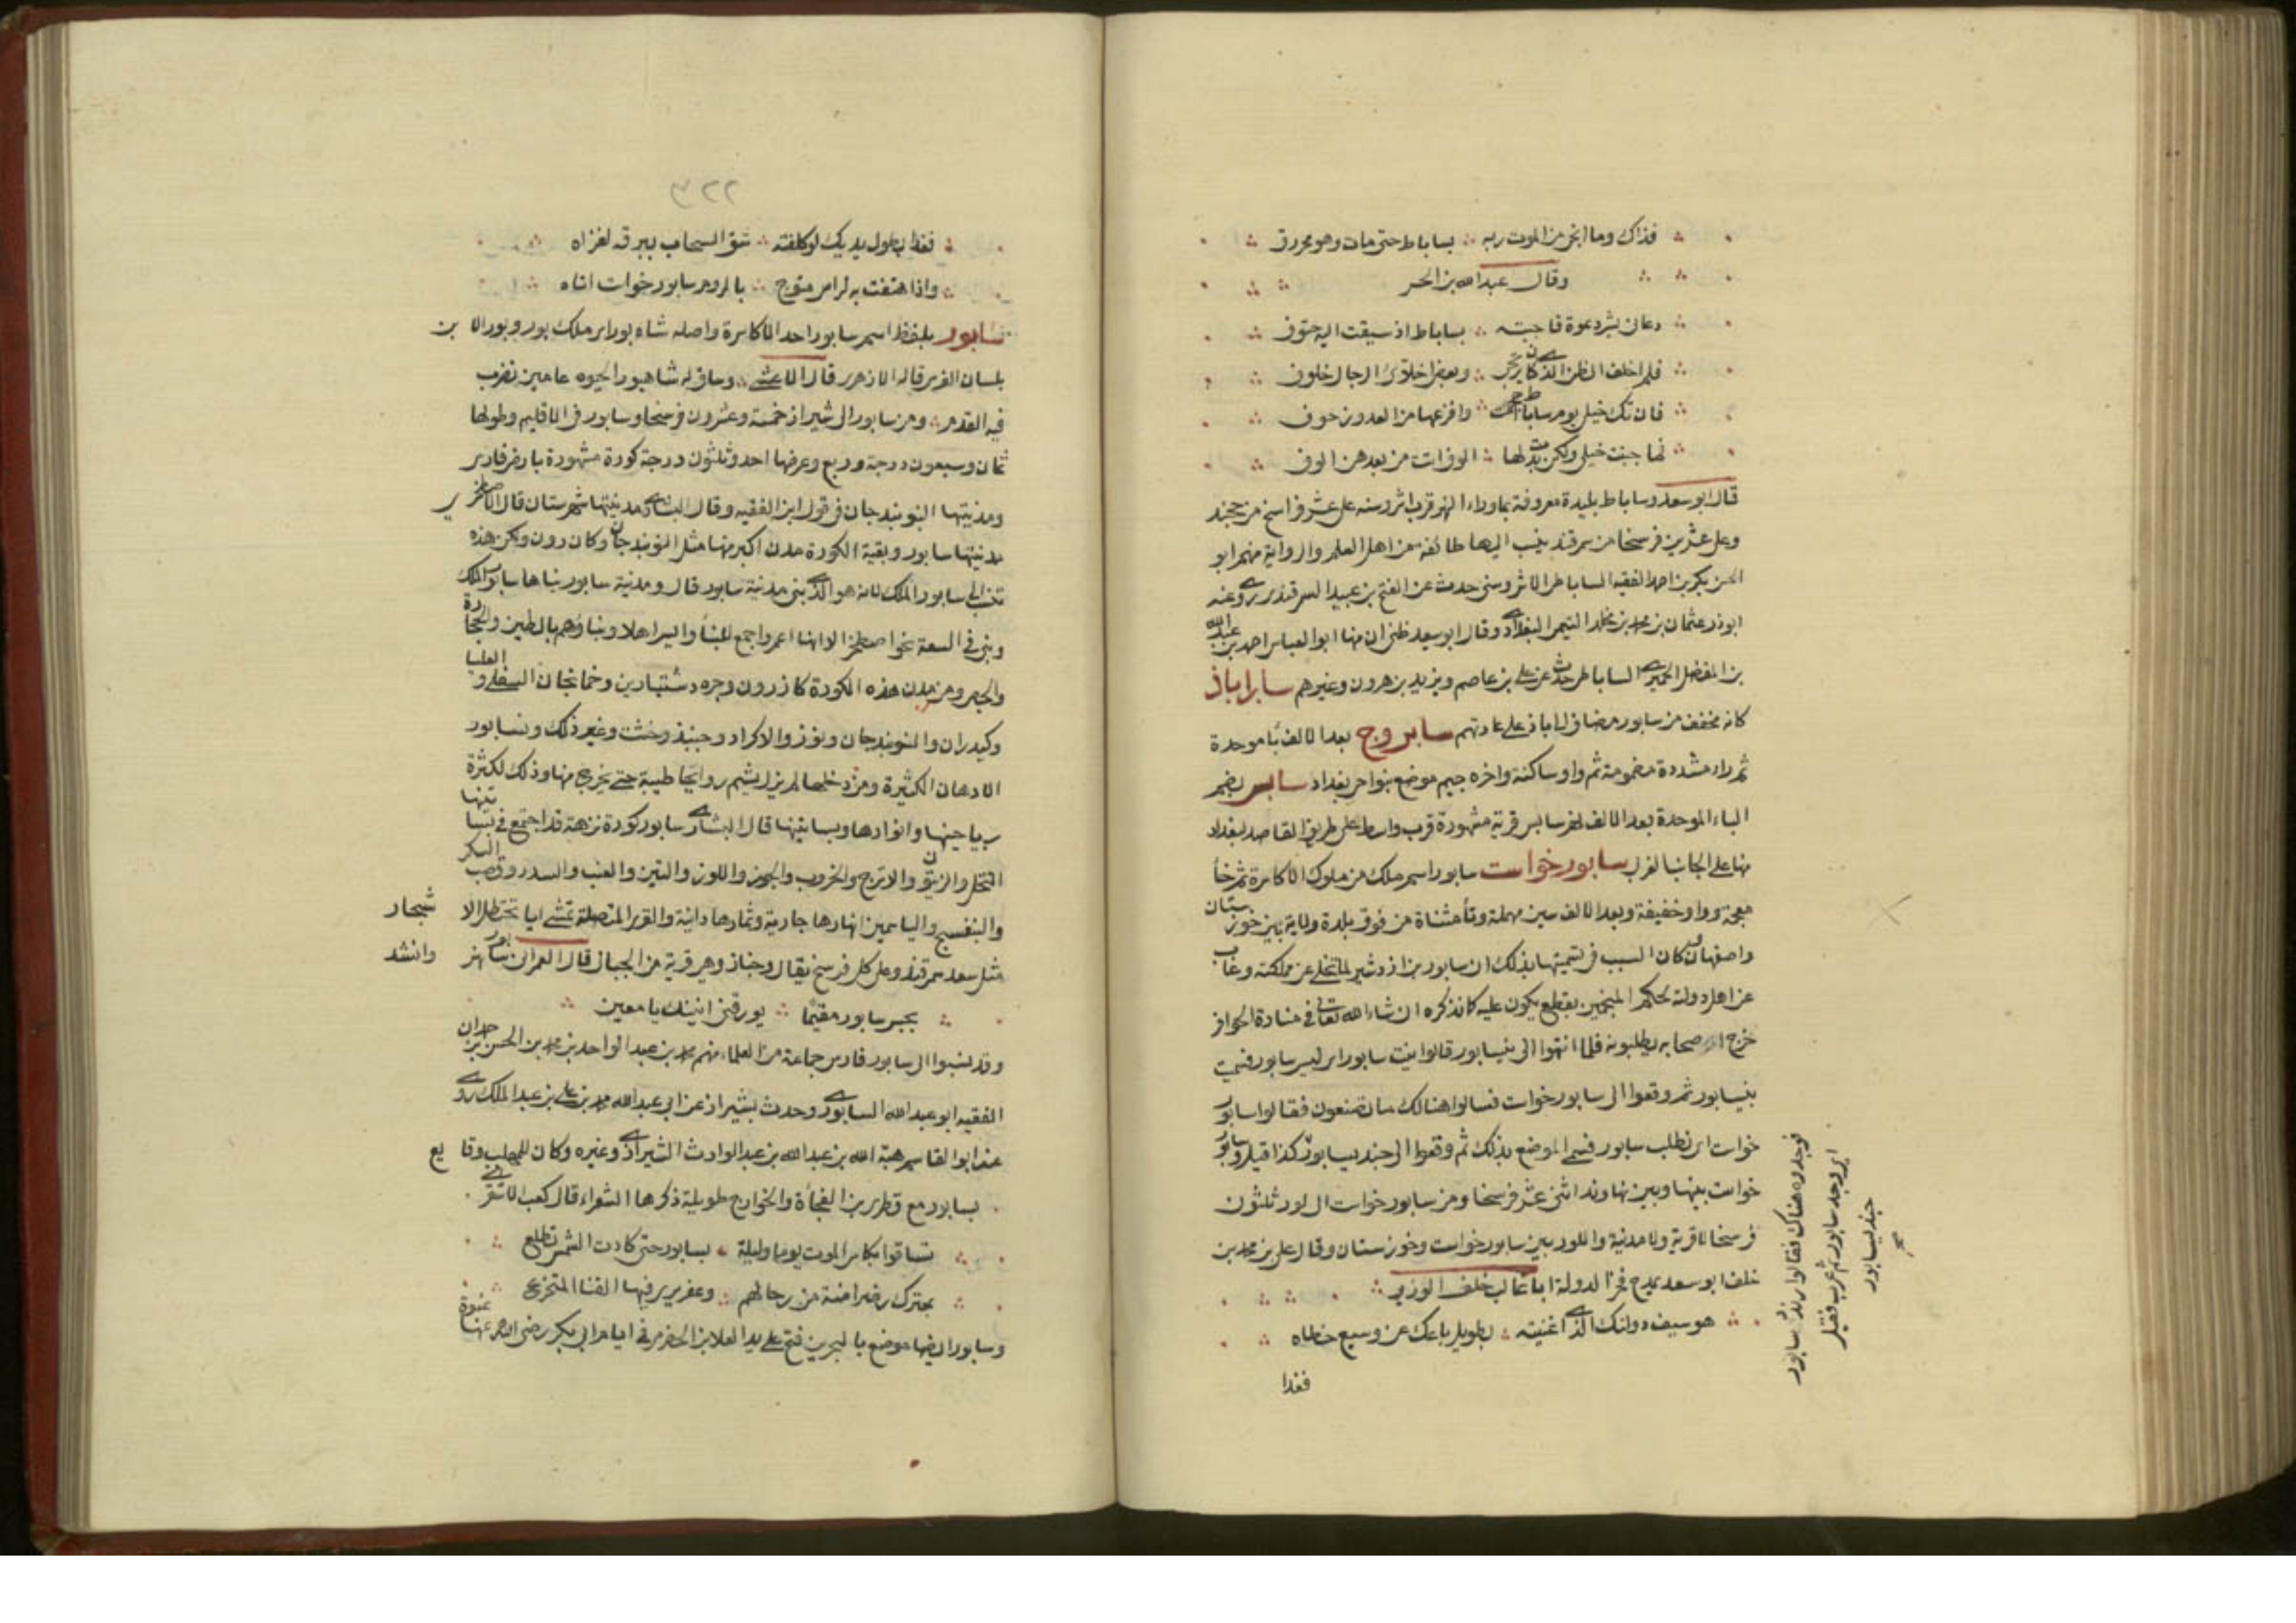 فذاك وما انجى من الموت ربه بساباط حتى مات وهو محرزق
وقال عبد الله بن الحر
دعاني بشر دعوة فاجبته بساباط اذ سيقت اليه حتوف
فلم اخلف الظن الذي كان يرتجى وبعض اخلاق الرجال خلوف
فان تك خيلي يوم ساباط احجمت وافزعها من العدو زحوف
فما جبنت خيلي ولكن بدت لها الوف اتت من بعدهن الوف
قال ابو سعد وساباط بليدة معروفة بما وراء النهر قرب اشروسنه على عشر فراسخ من خجند
وعلى عشرين فرسخا من سمرقند ينسب اليها طائفة من اهل العلم والرواية منهم ابو
الحسن بكر بن احمد الفقيه الساباطي الاشروسني حدث عن الفتح بن عبيد السمرقندي روى عنه
ابوذر عثمان بن محمد بن مخلد التميمي البغدادي وقال ابو سعد ظني ان منها ابو العباس احمد بن عبد الله
بن المفضل الحميري الساباطي حدث عن علي بن عاصم ويزيد بن هرون وغيرهم ساراباذ
كانه مخفف من سابور مضاف الى اباذ على عادتهم سابروج بعد الالف با موحدة
ثم راء مشددة مضمومة ثم واو ساكنة واخره جيم موضع بنواحي بغداد سابس بضم
الباء الموحدة بعد الالف نهر سابس قرية مشهورة قرب واسط على طريق القاصد لبغداد
منها على الجانب الغربي سابورخواست سابور اسم ملك من ملوك الاكاسرة ثم خا
معجمة وواو خفيفة وبعد الالف سين مهملة وتا مثناة من فوق بلدة ولاية بين خوزستان
واصفهان وكان السبب في تسميتها بذلك ان سابور بن اردشير لما تخلى عن مملكته وغاب
عن اهل دولته لحكم المنجمين بقطع يكون عليه كما نذكره ان شاء الله تعالى في منارة الحوافر
خرج اصحابه يطلبونه فلما انتهوا الى نيسابور قالوا نيست سابور اي ليس سابور فسميت
نيسابور ثم وقعوا الى سابورخواست فسالوا هنالك ما تصنعون فقالوا سابور
خواست اي نطلب سابور فسمي الموضع بذلك ثم وقعوا الى جنديسابور كذا قيل وسابور
خواست بينها وبين نهاوند اثنى عشر فرسخا ومن سابورخواست الى لور ثلثون
فرسخا لا قرية ولا مدينة واللور بين سابورخواست وخوزستان وقال علي بن محمد بن
خلف ابو سعد يمدح فخر الدولة ابا غالب خلف الوزير
هو سيف دولتك الذي اغنيته بطويل باعك عن وسيع خطاه
فغدا
فوجدوه هناك فقالوا وندى سابور
اي وجد سابور ثم عرب فقيل
جنديسابور
صح
٣٢٢
فغدا بطول يديك لو كلفته شق السحاب ببرقه لفراه
واذا هتفت به لراس متوج بالروم سابورخوات اتاه
سابور بلفظ اسم سابور احد الاكاسرة واصله شاه بور اي ملك بور وبور الابن
بلسان الفرس قاله الازهري قال الاعشى وساق له شاهبور الجيوه عامين تضرب
فيه القدم ومن سابور الى شيراز خمسة وعشرون فرسخا وسابور في الاقليم وطولها
ثمان وسبعون درجة وربع وعرضها احد وثلثون درجة كورة مشهورة بارض فارس
ومدينتها النوبندجان في قول ابن الفقيه وقال البشاري مدينتها شهرستان قال الاصطخري
مدينتها سابور وبقية الكورة مدن اكبر منها مثل النوبندجان وكازرون ولكن هذه
تنسب الى سابور الملك لانه هو الذي بنى مدينة سابور قال ومدينة سابور بناها سابور الملك
وبنى في السعة نحو اصطخر الا انها اعمر واجمع للبنأ وايسر اهلا وبناؤهم بالطين والحجارة
والجص ومن مدن هذه الكورة كازرون وجره ودشتبارين وخمانجان السفلى والعليا
وكيدران والنوبندجان وتوز والاكراد وجنبذ وخشت وغير ذلك وبسابور
الادهان الكثيرة ومن دخلها لم يزل يشم روايحا طيبة حتى يخرج منها وذلك لكثرة
رياحينها وانوارها وبساتينها قال البشاري سابور كورة نزهة قد اجتمع في بساتينها
النخل والزيتون والاترج والخروب والجوز واللوز والتين والعنب والسدر وقصب السكر
والبنفسج والياسمين انهارها جارية وثمارها دانية والقرى المتصلة تمشي اياما تحت ظل الاشجار
مثل سعد سمرقند وعلى كل فرسخ بقال وخباز وهي قرية من الجبال قال العمراني سابور نهر وانشد
بجسر سابور مقيما يورقني انينك يا معين
وقد نسبوا الى سابور فارس جماعة من العلماء منهم محمد بن عبد الواحد بن محمد بن الحسن بن حمدان
الفقيه ابو عبد الله السابوري وحدث بشيراز عن ابي عبد الله محمد بن علي بن عبد الملك روى
عنه ابو القاسم هبة الله بن عبد الله بن عبد الوارث الشيرازي وغيره وكان للمهلب وقايع
بسابور مع قطري بن الفجأة والخوارج طويلة ذكرها الشعراء قال كعب الاشقري
تساقوا بكاس الموت يوما وليلة بسابور حتى كادت الشمس تطلع
بمعترك رضراضة من رحالهم وعفر يرى فيها القنا المتخزع
وسابور ايضا موضع بالبحرين فتح على يد العلا بن الحضرمي في ايام ابي بكر رضي الله عنه عنوة